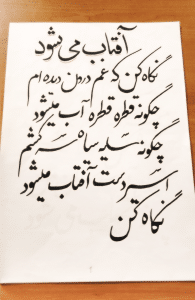 آفتاب می شود
نگاه کن که غم درون دیده ام
چگونه قطره قطره آب میشود
چگونه سایه سیاه سرکشم
اسیر دست آفتاب میشود
نگاه کن